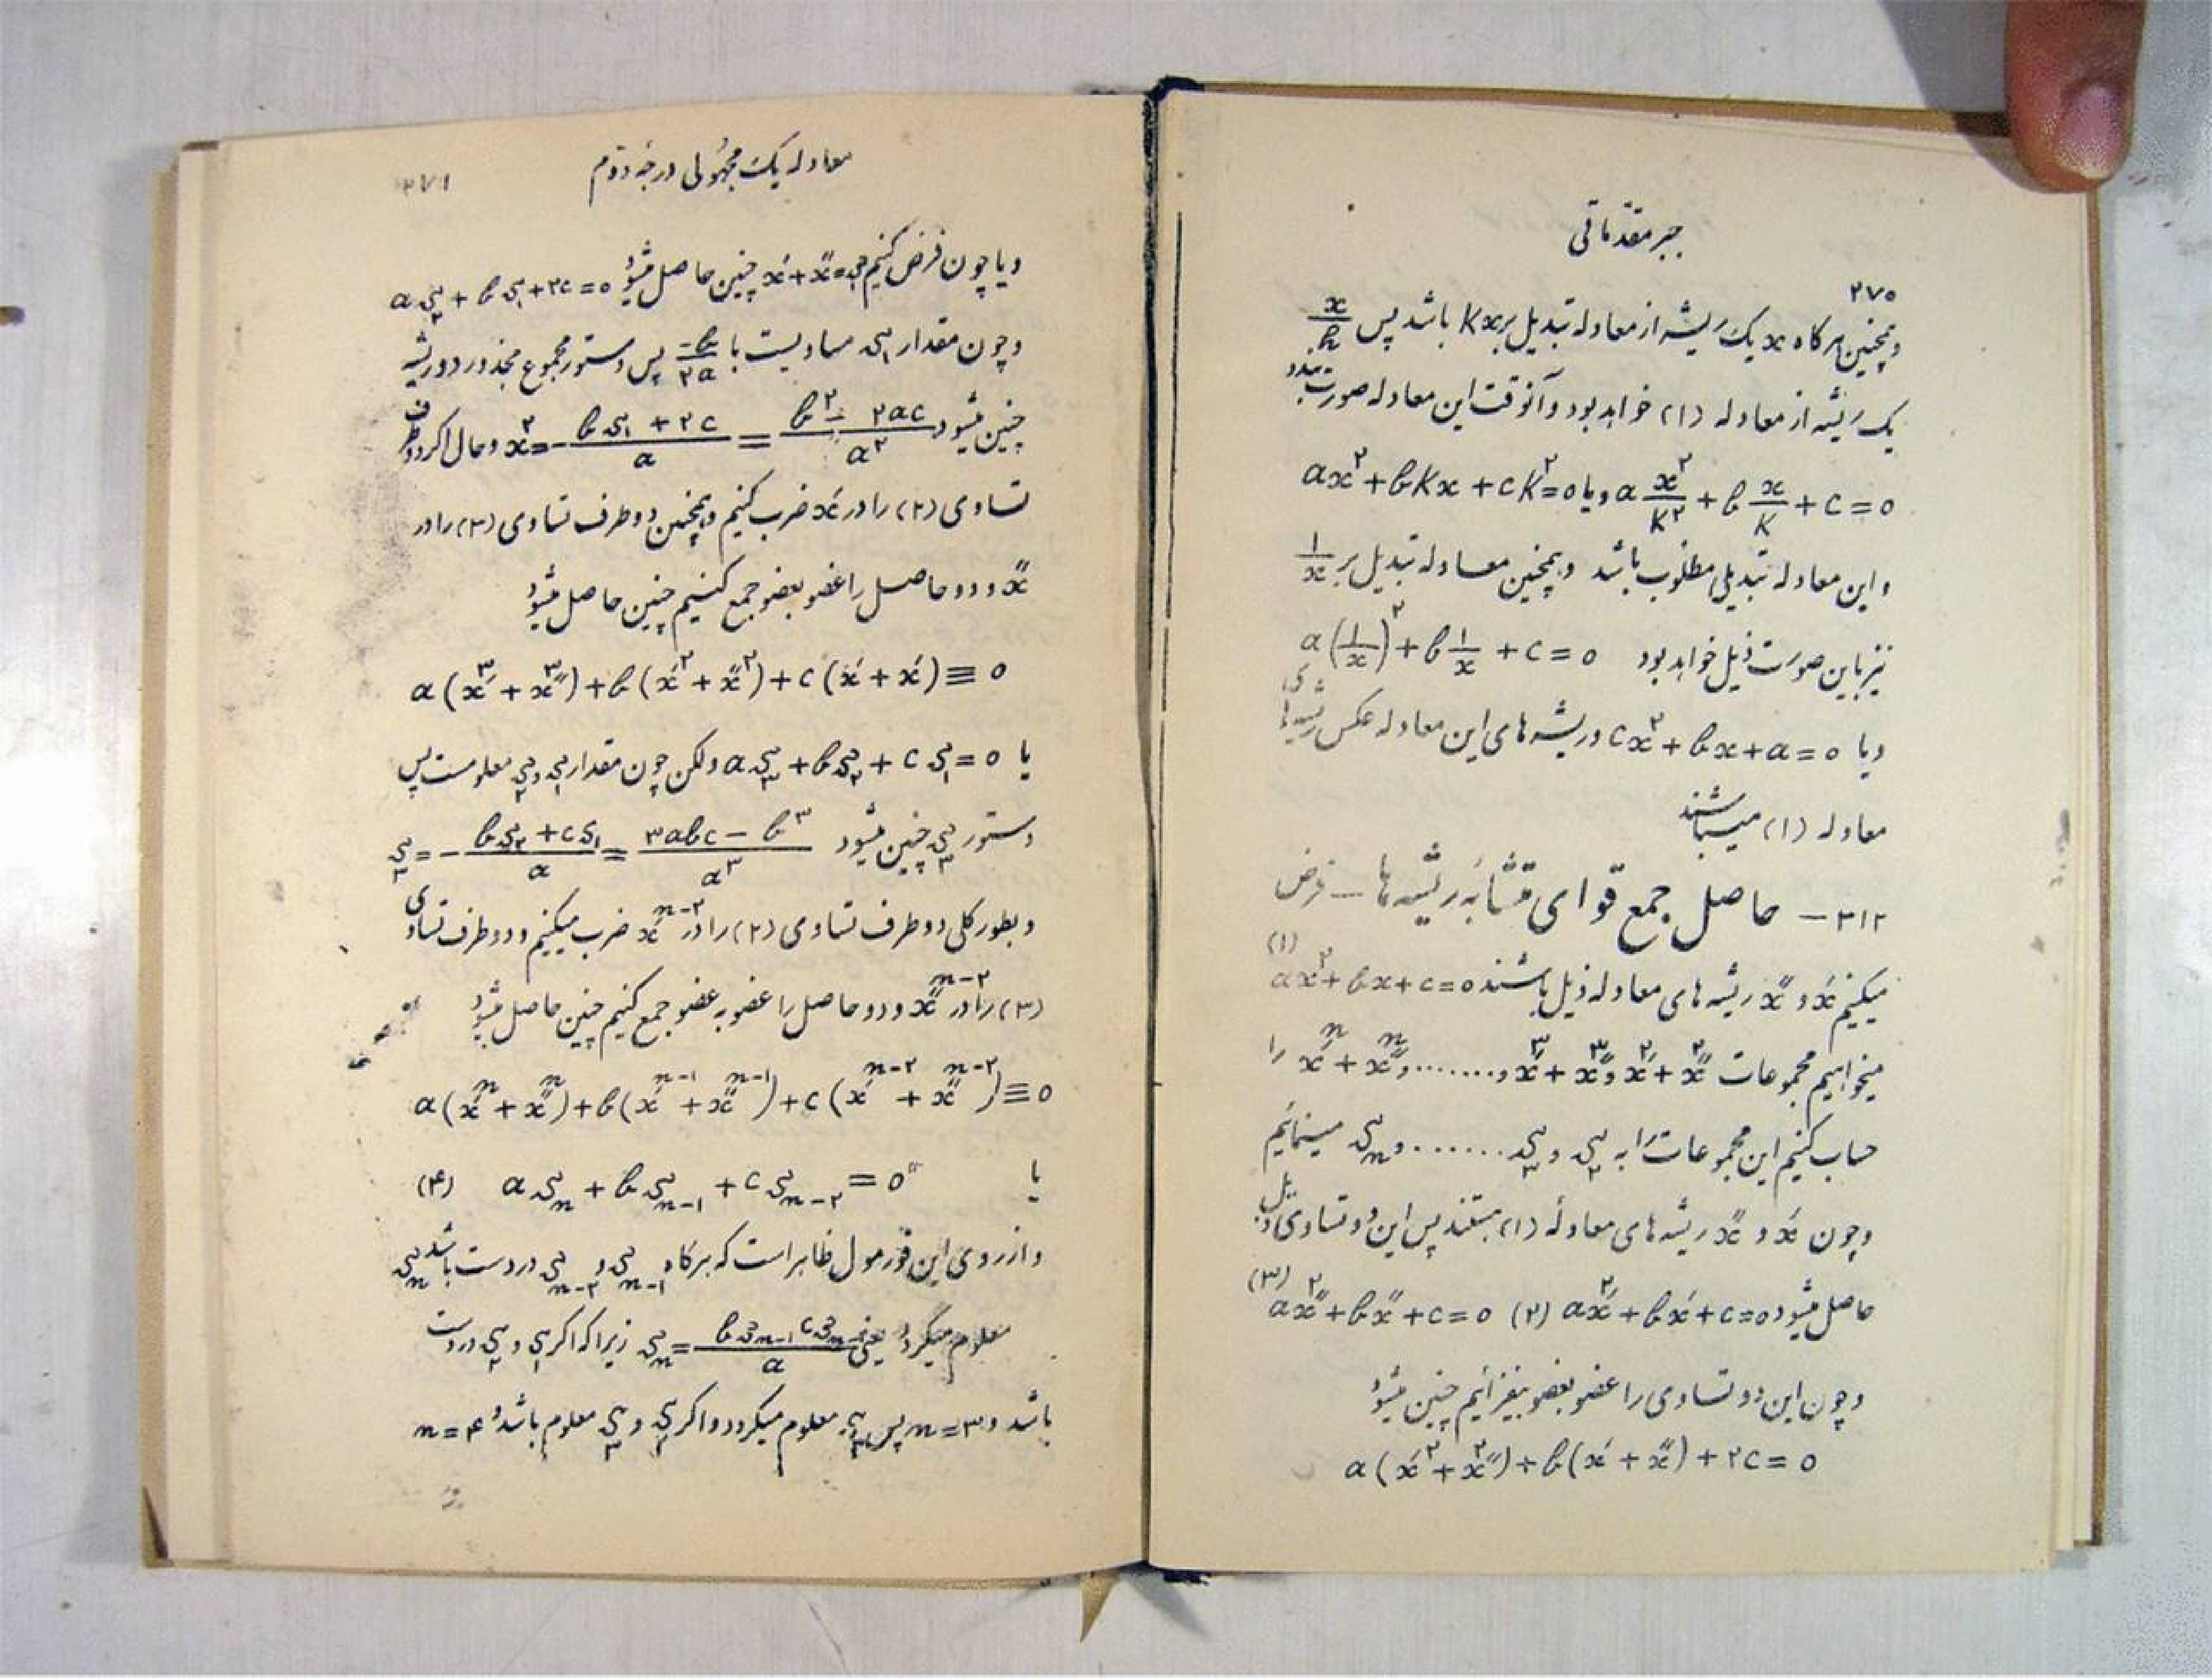 جبر مقدماتی
۲۷۰
و همچنین هر گاه x یک ریشه از معادله تبدیل بر Kx باشد پس x/k
یک ریشه از معادله (۱) خواهد بود و آنوقت این معادله صورت
a x^۲/K^۲ + b x/K + c = 0 و یا ax^۲ + bKx + cK^۲ = 0
و این معادله تبدیلی مطلوب باشد و همچنین معادله تبدیل بر ۱/x
نیز باین صورت ذیل خواهد بود a(۱/x)^۲ + b ۱/x + c = 0
و یا cx^۲ + bx + a = 0 و ریشه های این معادله عکس ریشه های
معادله (۱) میباشند
۳۱۲ — حاصل جمع قوای متشابه ریشه ها — فرض
میکنیم x′ و x″ ریشه های معادله ذیل باشند ax^۲ + bx + c = 0 (۱)
میخواهیم مجموعات x′^۲ + x″^۲ و x′^۳ + x″^۳ و ........ و x′^n + x″^n را
حساب کنیم این مجموعات را به س۲ و س۳ و ....... س n مینمائیم
و چون x′ و x″ ریشه های معادلهٔ (۱) هستند پس این دو تساوی ذیل
حاصل میشود ax′^۲ + bx′ + c = 0 (۲) ax″^۲ + bx″ + c = 0 (۳)
و چون این دو تساوی را عضو بعضو بیفزائیم چنین میشود
a(x′^۲ + x″^۲) + b(x′ + x″) + ۲c = 0
معادله یک مجهولی درجه دوم
۲۷۱
و یا چون فرض کنیم س۱ = x′ + x″ چنین حاصل میشود a س۲ + b س۱ + ۲c = 0
و چون مقدار س۱ مساویست با -b/۲a پس دستور مجموع مجذور دو ریشه
چنین میشود x^۲ = - (b س۱ + ۲c)/a = (b^۲ - ۲ac)/a^۲ و حال اگر دو طرف
تساوی (۲) را در x′ ضرب کنیم و همچنین دو طرف تساوی (۳) را در
x″ و دو حاصل را عضو بعضو جمع کنیم چنین حاصل میشود
a(x′^۳ + x″^۳) + b(x′^۲ + x″^۲) + c(x′ + x′) ≡ 0
یا a س۳ + b س۲ + c س۱ = 0 ولکن چون مقدار س۱ و س۲ معلومست پس
دستور س۳ چنین میشود س۳ = - (b س۲ + c س۱)/a = (۳abc - b^۳)/a^۳
و بطور کلی دو طرف تساوی (۲) را در x′^n-۲ ضرب میکنیم و دو طرف تساوی
(۳) را در x″^n-۲ و دو حاصل را عضو به عضو جمع کنیم چنین حاصل میشود
a(x′^n + x″^n) + b(x′^n-۱ + x″^n-۱) + c(x′^n-۲ + x″^n-۲) ≡ 0
یا a س n + b س n-۱ + c س n-۲ = 0 (۴)
و از روی این فورمول ظاهر است که هر گاه س n-۱ و س n-۲ در دست باشد س n
معلوم میگردد یعنی س n = (b س n-۱ c س n-۲)/a زیرا که اگر س۱ و س۲ در دست
باشد و n = ۳ پس س۳ معلوم میگردد و اگر س۲ و س۳ معلوم باشد و n = ۴